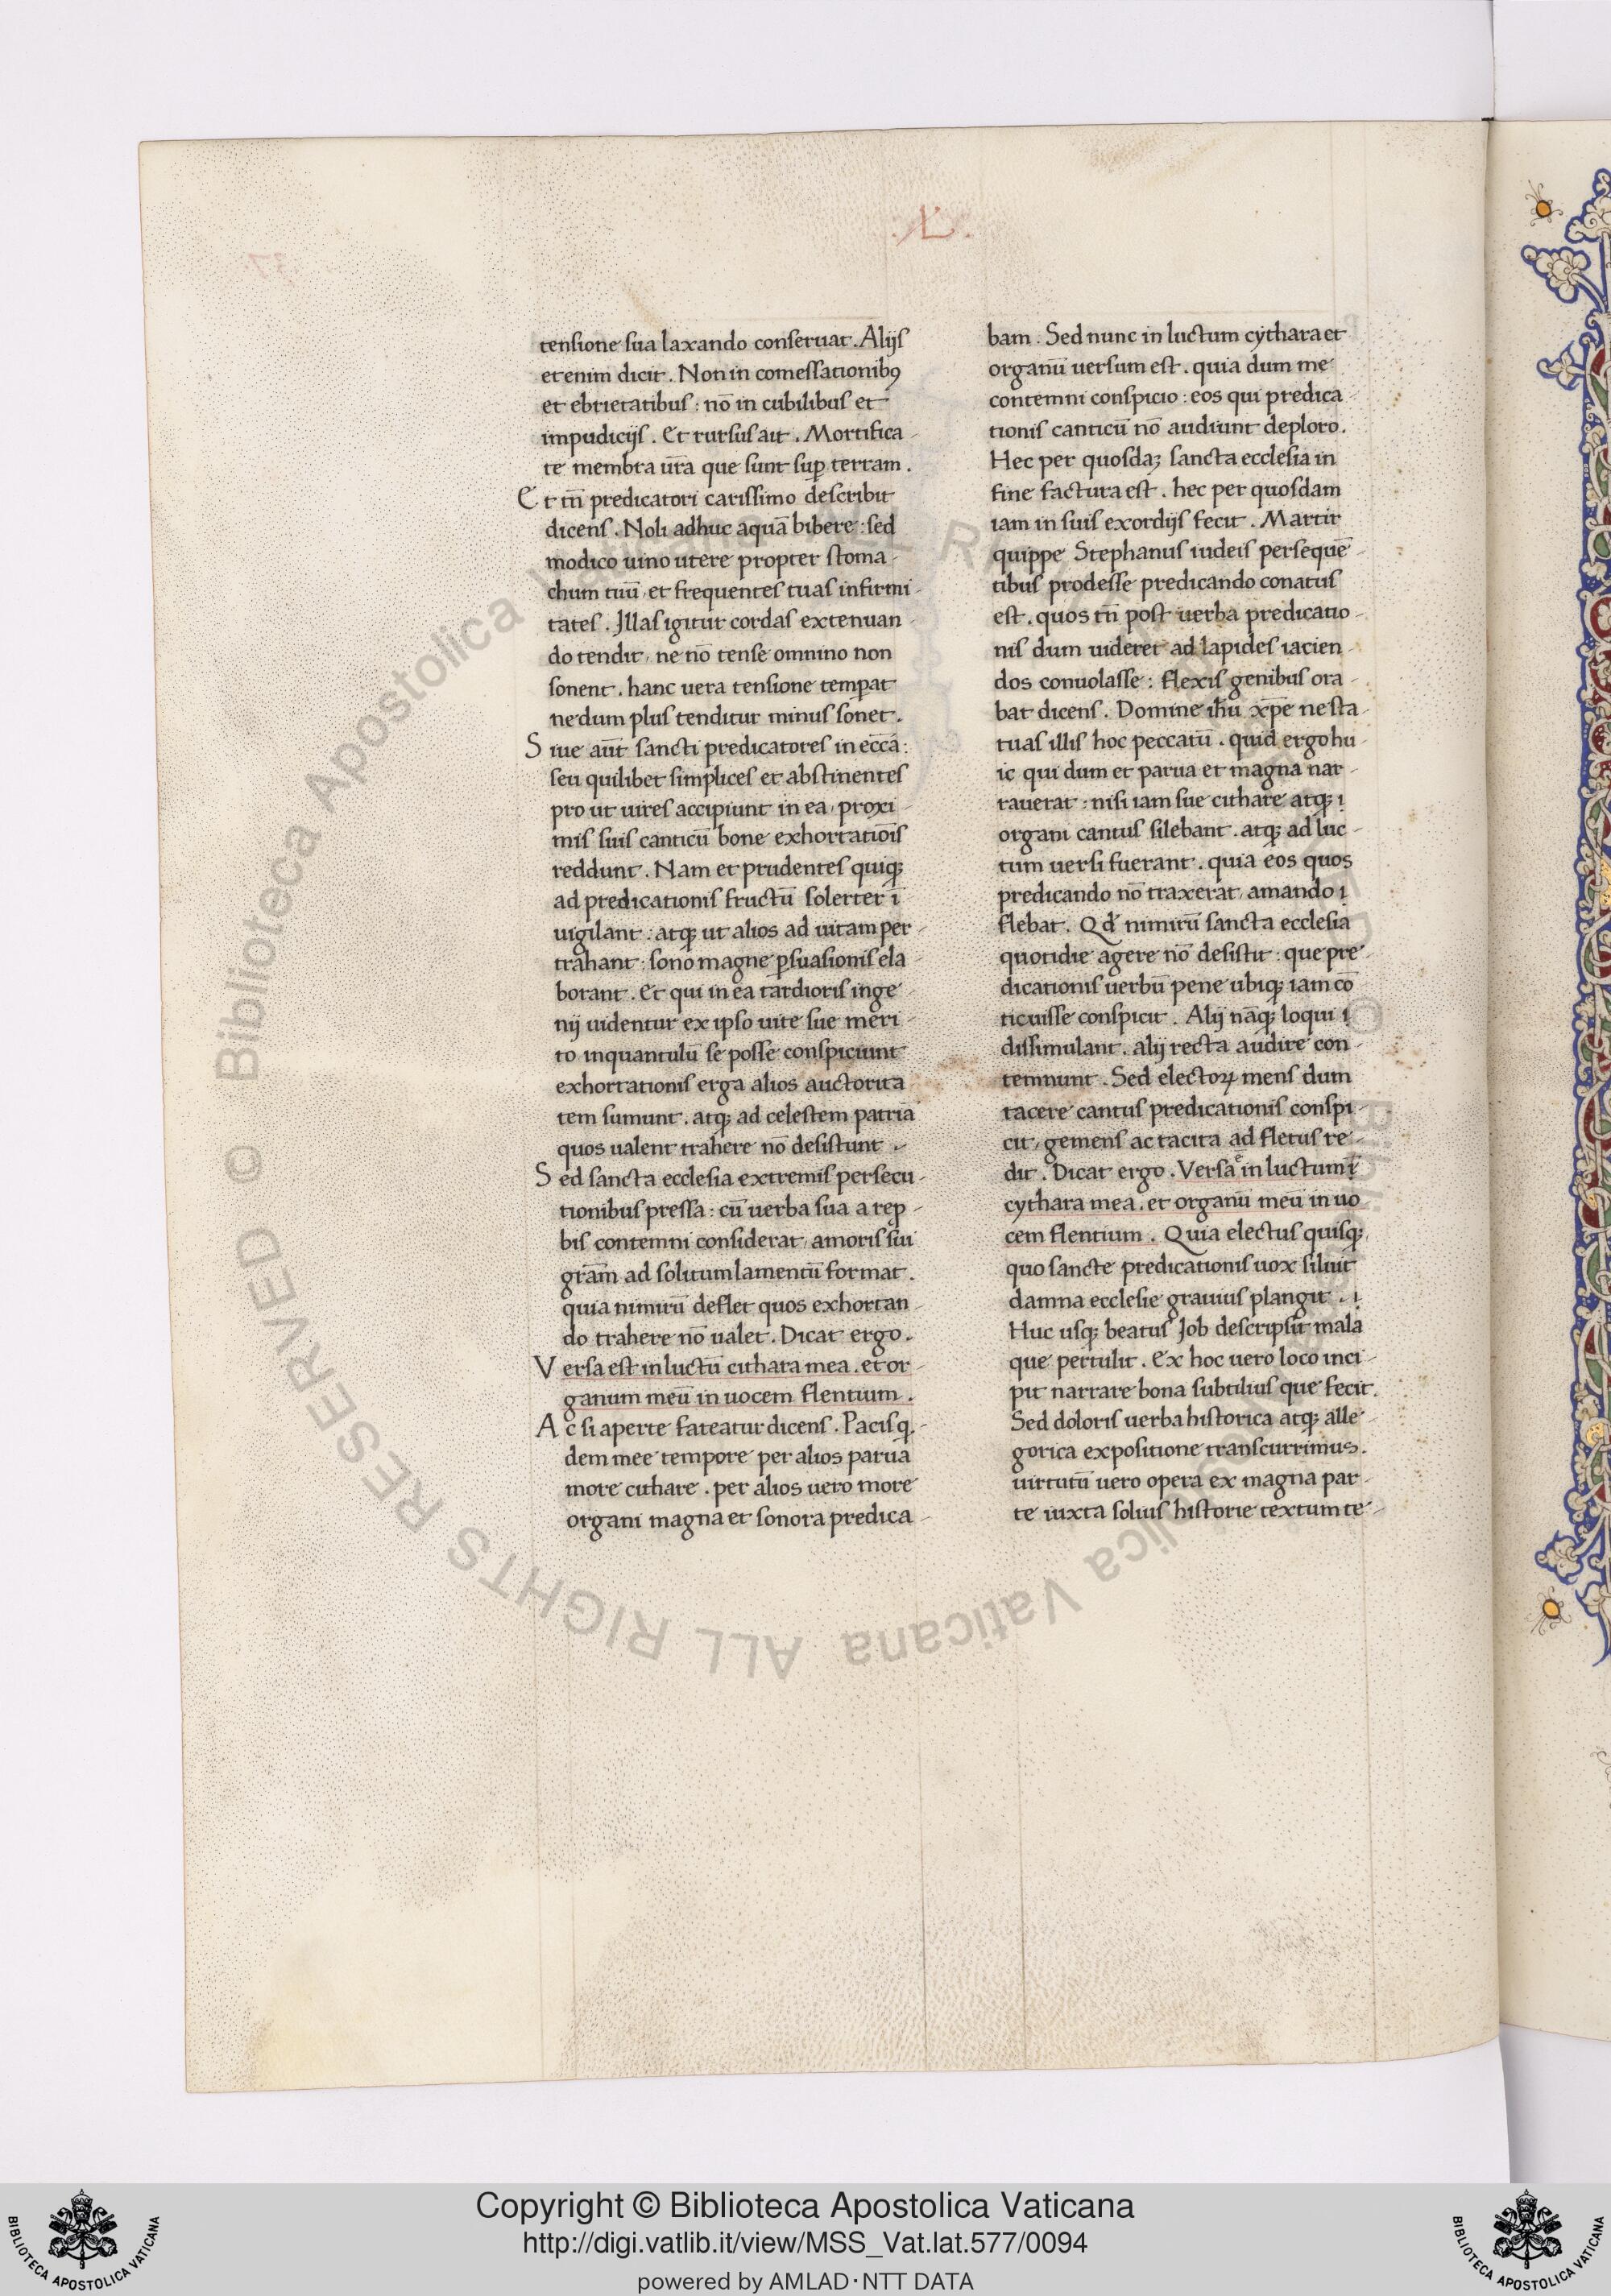 .L.
tensione sua laxando conseruat. Alijs
etenim dicit. Non in comessationibꝯ
et ebrietatibus: nō in cubilibus et
impudicijs. Et rursus ait. Mortifica-
te membra ur̄a que sunt suꝑ terram.
Et tn̄ predicatori carissimo describit
dicens. Noli adhuc aquā bibere: sed
modico uino utere propter stoma-
chum tuū, et frequentes tuas infirmi-
tates. Illas igitur cordas extenuan-
do tendit, ne nō tense omnino non
sonent. hanc uera tensione temꝑat
ne dum plus tenditur minus sonet.
Siue aūt sancti predicatores in ecc̄a:
seu quilibet simplices et abstinentes
pro ut uires accipiunt in ea, proxi-
mis suis canticū bone exhortatiōis
reddunt. Nam et prudentes quiqꝫ
ad predicationis fructū solerter ī
uigilant: atqꝫ ut alios ad uitam per-
trahant: sono magne ꝑsuasionis ela-
borant. Et qui in ea tardioris inge-
nij uidentur ex ipso uite sue meri-
to inquantulū se posse conspiciunt
exhortationis erga alios auctorita-
tem sumunt. atqꝫ ad celestem patriā
quos ualent trahere nō desistunt.
Sed sancta ecclesia extremis persecu-
tionibus pressa: cū uerba sua a reꝓ-
bis contemni considerat, amoris sui
gram̄ ad solitum lamentū format.
quia nimirū deflet quos exhortan-
do trahere nō ualet. Dicat ergo.
Versa est in luctū cithara mea. et or-
ganum meū in uocem flentium.
Ac si aperte fateatur dicens. Pacis q.
dem mee tempore per alios parua
more cithare. per alios uero more
organi magna et sonora predica-
bam. Sed nunc in luctum cythara et
organū uersum est. quia dum me
contemni conspicio: eos qui predica-
tionis canticū nō audiunt deploro.
Hec per quosdaꝫ sancta ecclesia in
fine factura est. hec per quosdam
iam in suis exordijs fecit. Martir
quippe Stephanus iudeis persequē-
tibus prodesse predicando conatus
est. quos tn̄ post uerba predicatio-
nis dum uideret ad lapides iacien-
dos conuolasse: flexis genibus ora-
bat dicens. Domine ihū xp̄e ne sta-
tuas illis hoc peccatū. quid ergo hu-
ic qui dum et parua et magna nar-
rauerat: nisi iam sue cithare atqꝫ
organi cantus silebant. atqꝫ ad luc-
tum uersi fuerant. quia eos quos
predicando nō traxerat, amando
flebat. Qd̓ nimirū sancta ecclesia
quotidie agere nō desistit: que pre-
dicationis uerbū pene ubiqꝫ iam cō
ticuisse conspicit. Alij nāqꝫ loqui
dissimulant. alij recta audire con-
temnunt. Sed electoꝝ mens dum
tacere cantus predicationis conspi-
cit, gemens ac tacita ad fletus re-
dit. Dicat ergo. Versa ē in luctum
cythara mea. et organū meū in uo
cem flentium. Quia electus quisqꝫ,
quo sancte predicationis uox siluit
damna ecclesie grauius plangit.
Huc usqꝫ beatus Job descripsit mala
que pertulit. Ex hoc uero loco inci-
pit narrare bona subtilius que fecit.
Sed doloris uerba historica atqꝫ alle-
gorica expositione transcurrimus.
uirtutū uero opera ex magna par-
te iuxta solius historie textum te-
© Biblioteca Apostolica Vaticana ALL RIGHTS RESERVED
Copyright © Biblioteca Apostolica Vaticana
http://digi.vatlib.it/view/MSS_Vat.lat.577/0094
powered by AMLAD·NTT DATA
BIBLIOTECA APOSTOLICA VATICANA
BIBLIOTECA APOSTOLICA VATICANA